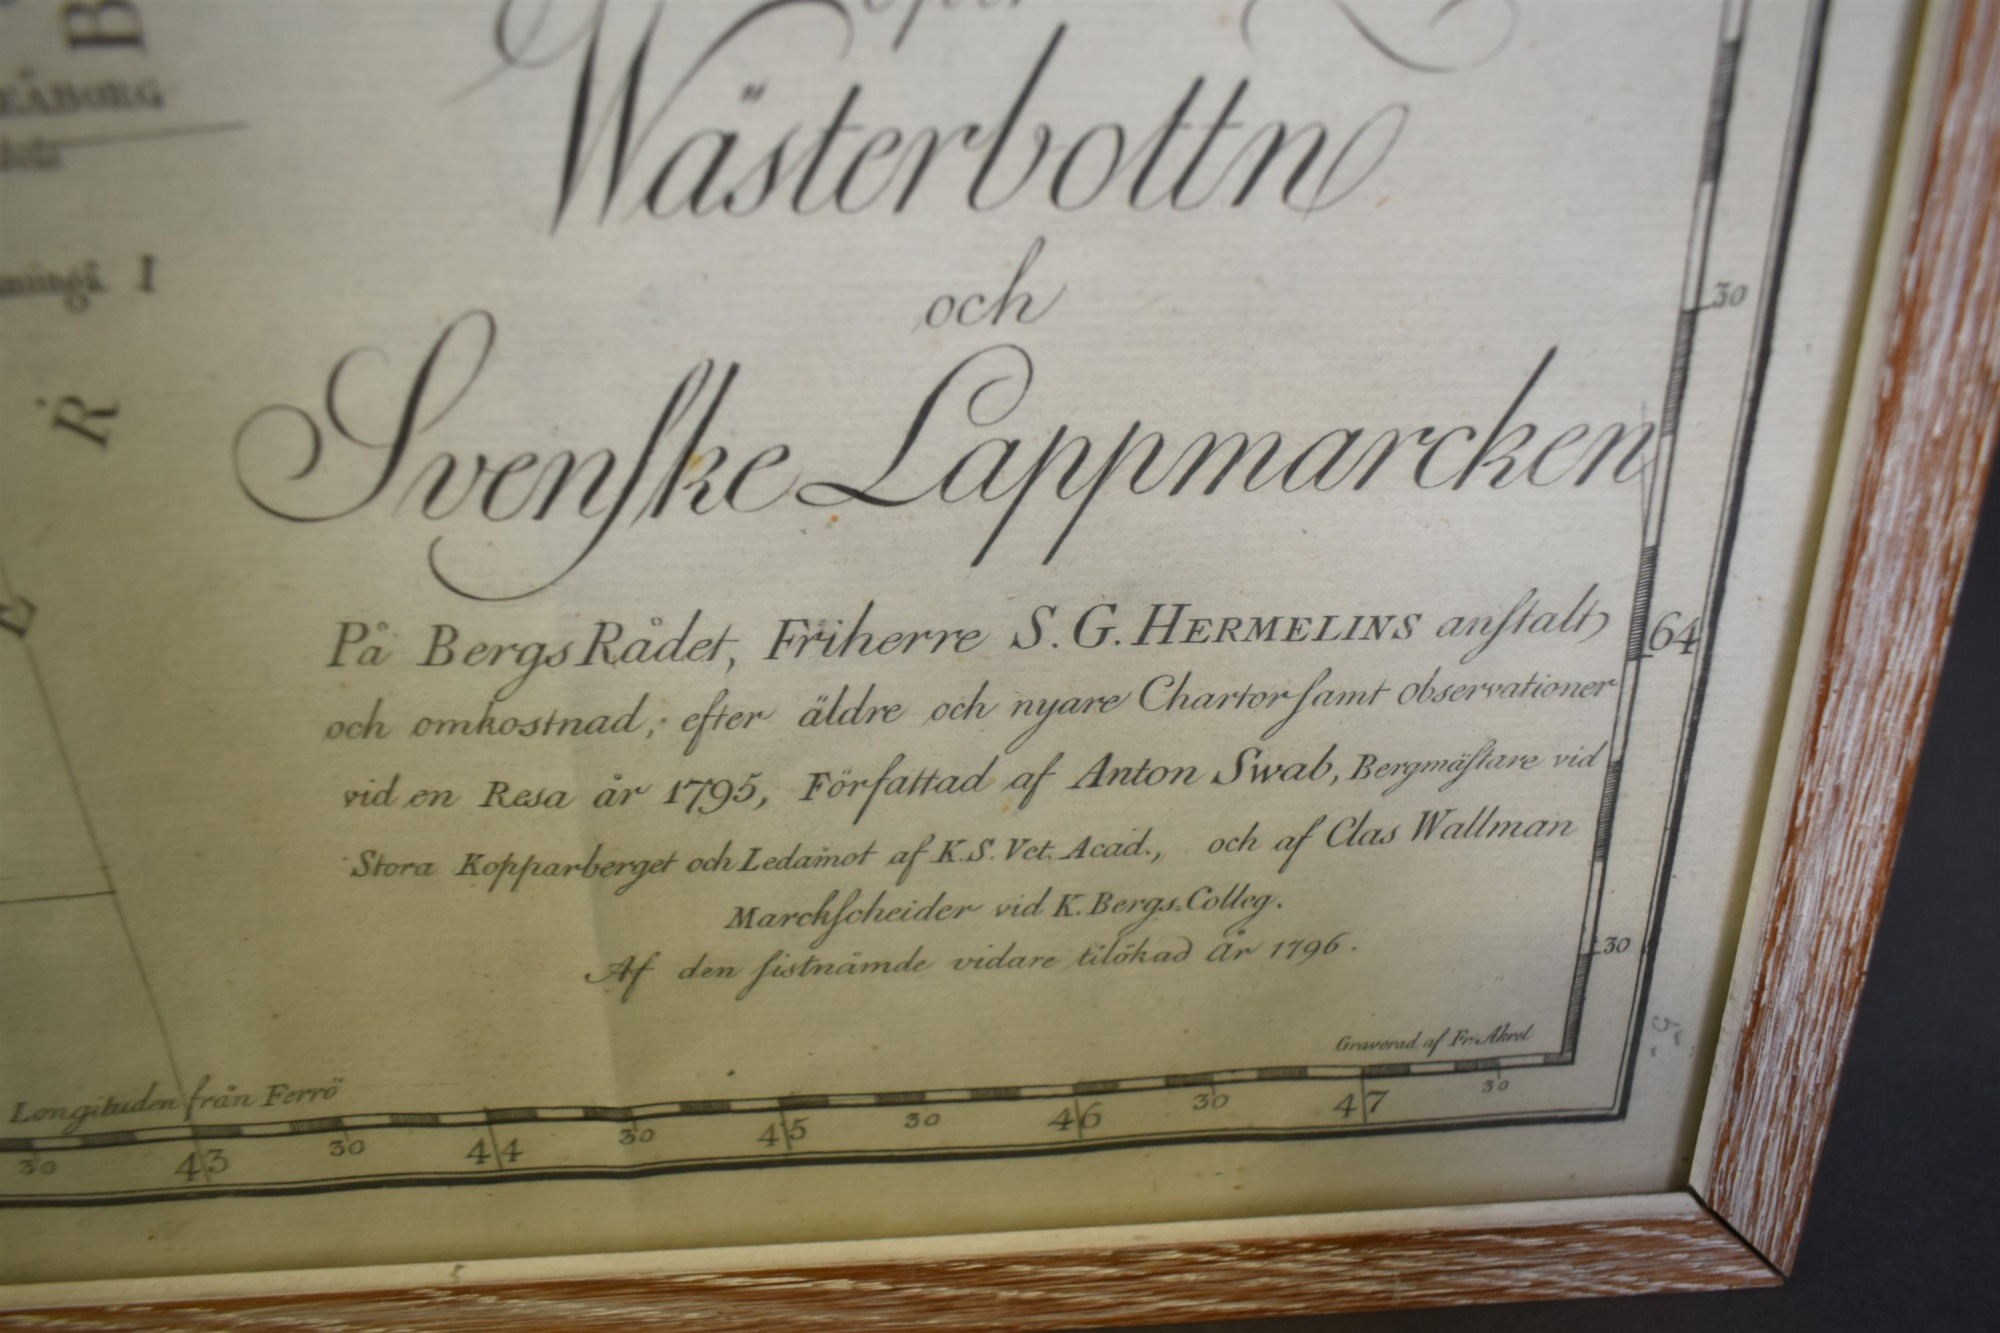 öfver
Wästerbottn
och
Svenſke Lappmarcken
På Bergs Rådet, Friherre S. G. HERMELINS anſtalt
och omkostnad, efter äldre och nyare Chartor ſamt observationer
vid en Resa år 1795, Författad af Anton Swab, Bergmäſtare vid
Stora Kopparberget och Ledamot af K.S. Vet. Acad., och af Clas Wallman
Marckſcheider vid K. Bergs-Colleg.
Af den ſistnämde vidare tilökad år 1796.
Graverad af Fr. Akrel
Longituden från Ferrö
30 43 30 44 30 45 30 46 30 47 30
30
64
30
B
EÅBORG
I
R
E